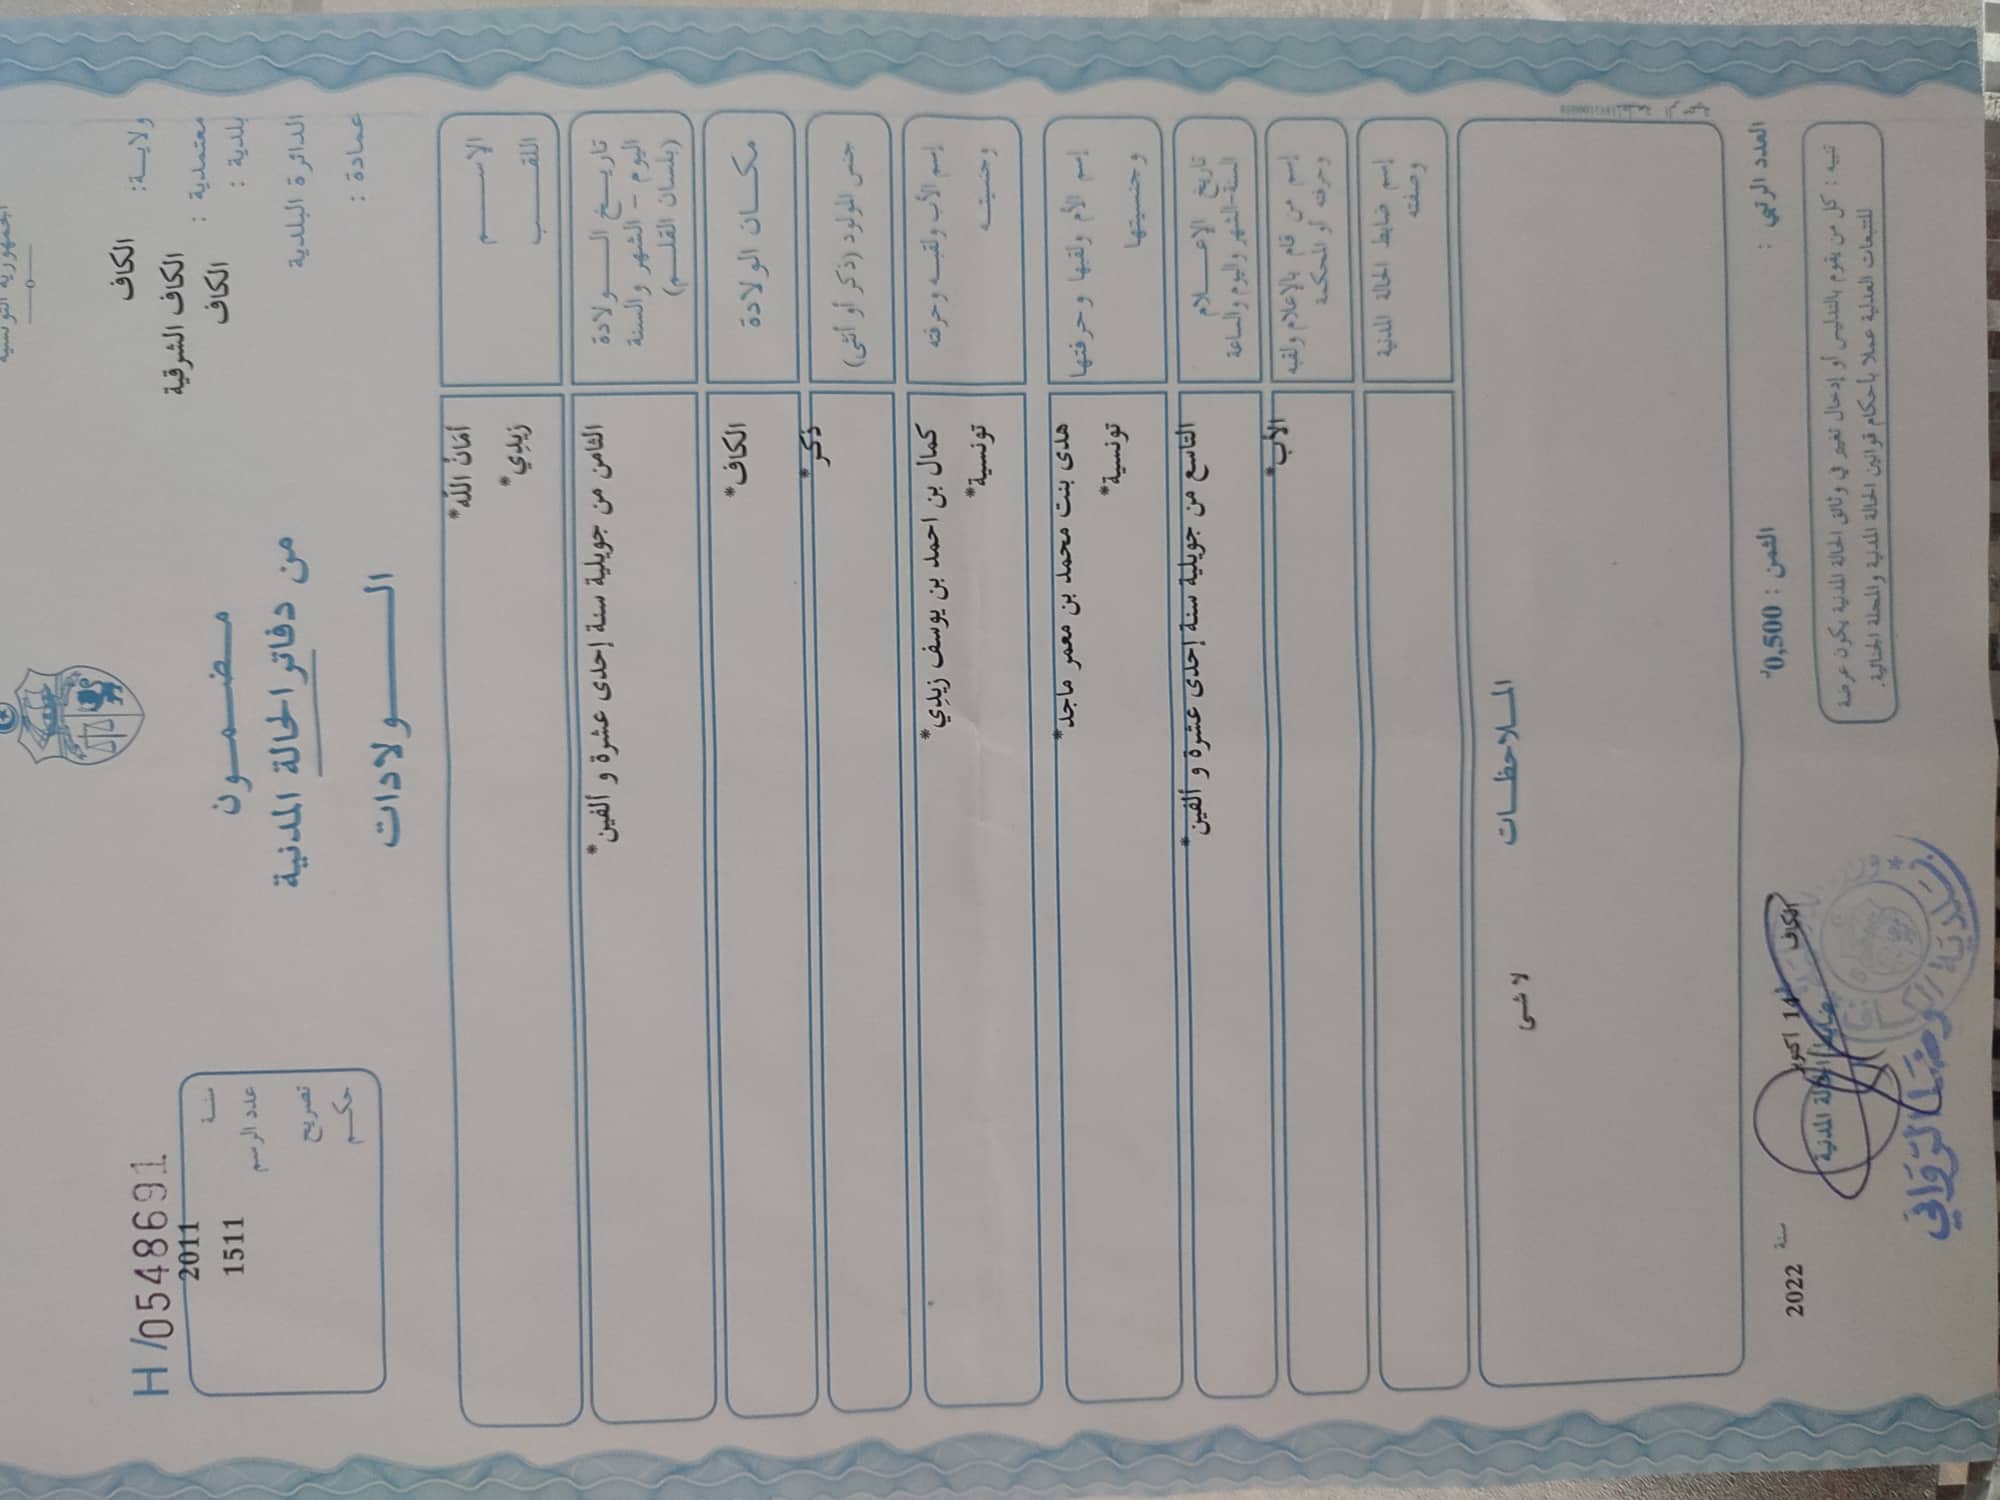 الجمهورية التونسية
ولايــة: الكاف
معتمدية : الكاف الشرقية
بلدية : الكاف
الدائرة البلدية
عمادة :
مـضـمـــون
من دفاتر الحالة المدنية
الـــولادات
H/0548691
سنــة 2011
عدد الرسم 1511
تصريح
حكــم
الاســـــم أمَانُ الله*
اللقـــــب زيدِي*
تاريــخ الـــولادة
اليوم - الشهر والسنة
(بلسان القلــم)
الثامن من جويلية سنة إحدى عشرة و ألفين*
مكــان الولادة الكاف*
جنس المولود (ذكر أو أنثى) ذكر*
إسم الأب ولقبــه وحرفته كمال بن احمد بن يوسف زيدِي*
وجنسيتــه تونسية*
إسم الأم ولقبها وحرفتها هدى بنت محمد بن معمر ماجد*
وجنسيتها تونسية*
تاريخ الإعـــلام
السنة-الشهر واليوم والساعة
التاسع من جويلية سنة إحدى عشرة و ألفين*
إسم من قام بالإعلام ولقبه
وحرفته أو المحكمة
الأب*
إسم ضابط الحالة المدنية
وصفته
المـلاحظــات
لا شى
العدد الرتبي :
الثمن : 0,500
الكاف 14 اكتوبر سنة 2022
ضابط الحالة المدنية
بلدية الكاف
تنبيه : كل من يقوم بالتدليس أو إدخال تغيير في وثائق الحالة المدنية يكون عرضة
للتتبعات العدلية عملا بأحكام قوانين الحالة المدنية والمجلة الجنائية.